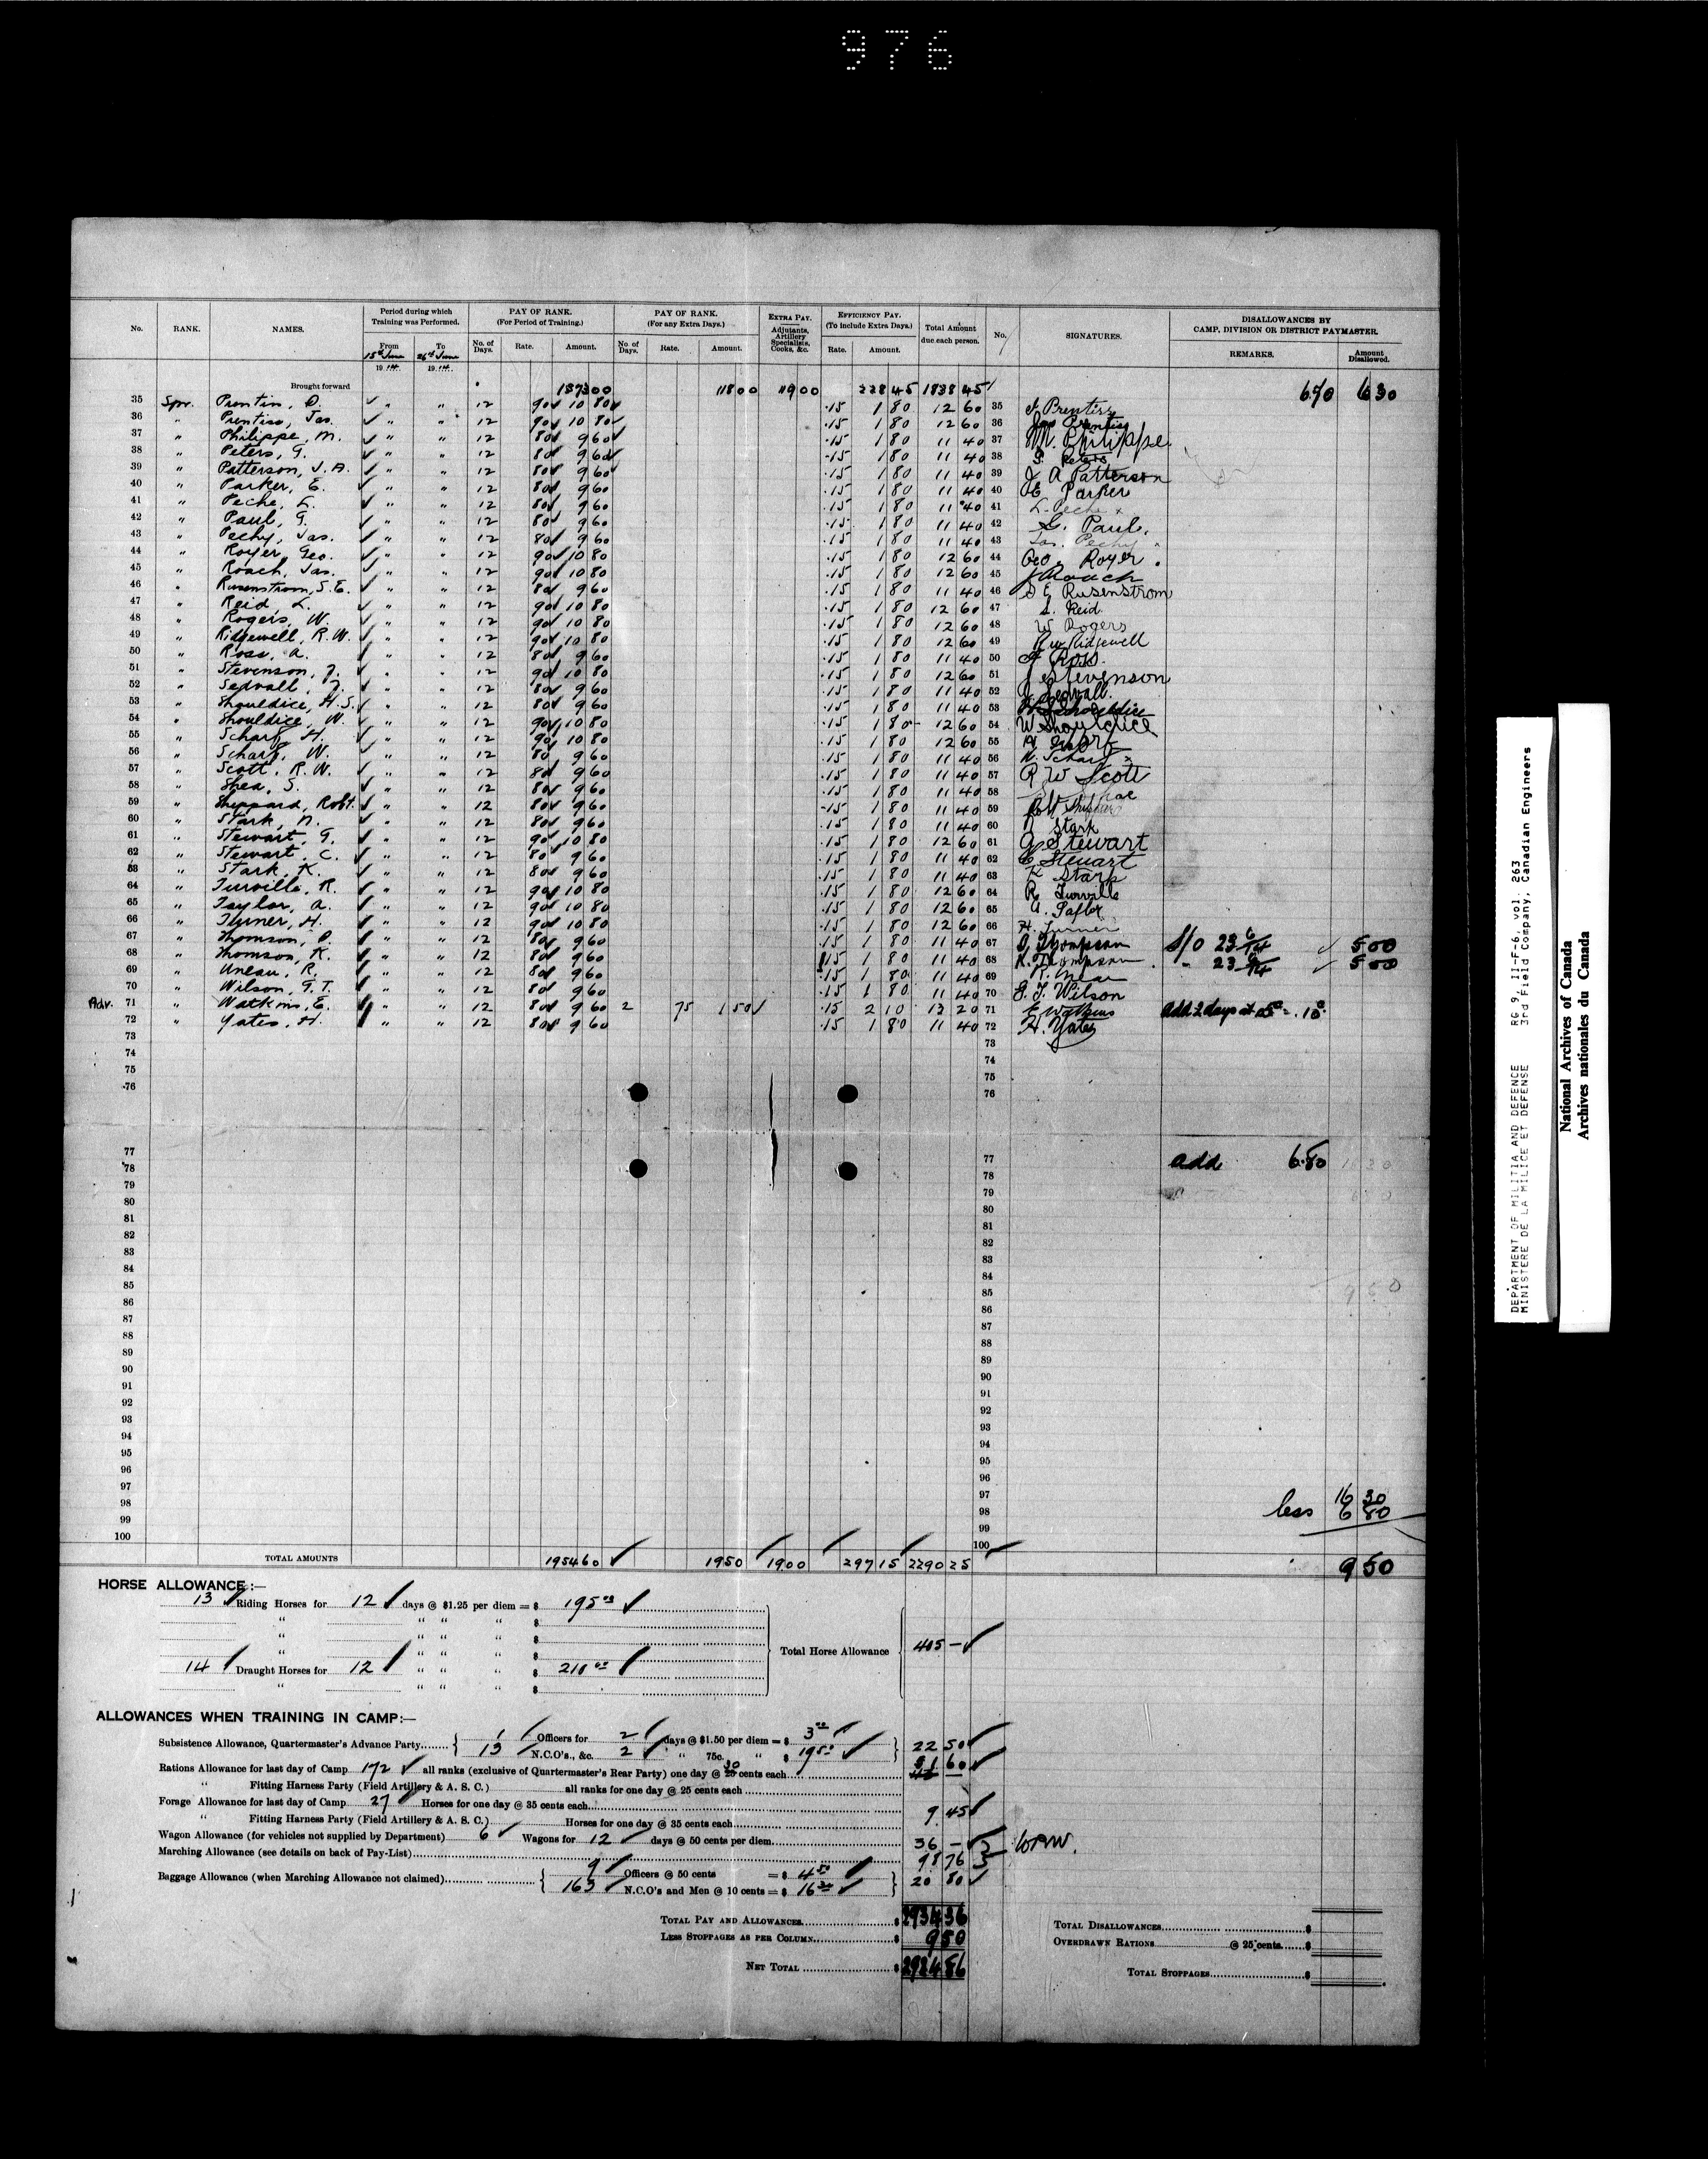 976
No. RANK. NAMES. Period during which Training was Performed. PAY OF RANK. (For Period of Training.) PAY OF RANK. (For any Extra Days.) EXTRA PAY. Adjutants, Artillery Specialists, Cooks, &c. EFFICIENCY PAY. (To include Extra Days.) Total Amount due each person. No. SIGNATURES. DISALLOWANCES BY CAMP, DIVISION OR DISTRICT PAYMASTER.
From To No. of Days. Rate. Amount. No. of Days. Rate. Amount. Rate. Amount. REMARKS. Amount Disallowed.
15th June 1914 26th June 1914
Brought forward 1838 45 6.70 6 30
35 Spr. Prentiss, D. " " 12 90 10 80 .15 1 80 12 60 35
36 " Prentiss, Jas. " " 12 90 10 80 .15 1 80 12 60 36 Jas Prentiss
37 " Philippe, M. " " 12 80 9 60 .15 1 80 11 40 37 M. Philippe
38 " Peters, G. " " 12 80 9 60 .15 1 80 11 40 38 G. Peters
39 " Patterson, J. A. " " 12 80 9 60 .15 1 80 11 40 39 J A Patterson
40 " Parker, E. " " 12 80 9 60 .15 1 80 11 40 40 E Parker
41 " Peche, L. " " 12 80 9 60 .15 1 80 11 40 41 L. Peche x
42 " Paul, G. " " 12 80 9 60 .15 1 80 11 40 42 G. Paul.
43 " Pechy, Jas. " " 12 80 9 60 .15 1 80 11 40 43 Jas. Pechy
44 " Royer, Geo. " " 12 90 10 80 .15 1 80 12 60 44 Geo. Royer
45 " Roach, Jas. " " 12 90 10 80 .15 1 80 12 60 45 J Roach
46 " Rusenstrom, S. E. " " 12 80 9 60 .15 1 80 11 40 46 S E Rusenstrom
47 " Reid, L. " " 12 90 10 80 .15 1 80 12 60 47 L. Reid
48 " Rogers, W. " " 12 90 10 80 .15 1 80 12 60 48 W Rogers
49 " Ridgewell, R. W. " " 12 90 10 80 .15 1 80 12 60 49 R W Ridgewell
50 " Ross, A. " " 12 80 9 60 .15 1 80 11 40 50 A Ross.
51 " Stevenson, J. " " 12 90 10 80 .15 1 80 12 60 51 J Stevenson
52 " Sedvall, J. " " 12 80 9 60 .15 1 80 11 40 52 J Sedvall.
53 " Shouldice, H. S. " " 12 80 9 60 .15 1 80 11 40 53 H S Shouldice
54 " Shouldice, W. " " 12 90 10 80 .15 1 80 12 60 54 W Shouldice
55 " Scharf, H. " " 12 90 10 80 .15 1 80 12 60 55 H Scharf
56 " Scharf, W. " " 12 80 9 60 .15 1 80 11 40 56 W. Scharf x
57 " Scott, R. W. " " 12 80 9 60 .15 1 80 11 40 57 R W Scott
58 " Shea, S. " " 12 80 9 60 .15 1 80 11 40 58
59 " Sheppard, Robt. " " 12 80 9 60 .15 1 80 11 40 59
60 " Stark, N. " " 12 80 9 60 .15 1 80 11 40 60 N Stark
61 " Stewart, G. " " 12 90 10 80 .15 1 80 12 60 61 G Stewart
62 " Stewart, C. " " 12 80 9 60 .15 1 80 11 40 62 C Steuart
63 " Stark, K. " " 12 80 9 60 .15 1 80 11 40 63 K Stark
64 " Turville, R. " " 12 90 10 80 .15 1 80 12 60 64 R Turville
65 " Taylor, A. " " 12 90 10 80 .15 1 80 12 60 65 A. Taylor
66 " Turner, H. " " 12 90 10 80 .15 1 80 12 60 66 H. Turner
67 " Thomson, D. " " 12 80 9 60 .15 1 80 11 40 67 D Thompson S/o 23/6/14 5 00
68 " Thomson, K. " " 12 80 9 60 .15 1 80 11 40 68 K. Thompson " 23/6/14 5 00
69 " Uneau, R. " " 12 80 9 60 .15 1 80 11 40 69
70 " Wilson, G. T. " " 12 80 9 60 .15 1 80 11 40 70 G. T. Wilson
Adv. 71 " Watkins, E. " " 12 80 9 60 2 75 1 50 .15 2 10 13 20 71 E Watkins add 2 days at 05c = .10c
72 " Yates, H. " " 12 80 9 60 .15 1 80 11 40 72 H. Yates
73 73
74 74
75 75
76 76
77 77 add 6.80
78 78
79 79
80 80
81 81
82 82
83 83
84 84
85 85
86 86
87 87
88 88
89 89
90 90
91 91
92 92
93 93
94 94
95 95
96 96
97 97 16 30
98 98 less 6 80
99 99
100 100
TOTAL AMOUNTS 1954 60 19 50 19 00 297 15 2290 25 9 50
HORSE ALLOWANCE :—
13 Riding Horses for 12 days @ $1.25 per diem = $ 195 00
" " " " $
" " " " $
Total Horse Allowance 405 —
14 Draught Horses for 12 " " " $ 210 00
" " " " $
ALLOWANCES WHEN TRAINING IN CAMP:—
Subsistence Allowance, Quartermaster's Advance Party { 1 Officers for 2 days @ $1.50 per diem = $ 3 00
13 N.C.O's., &c. 2 " 75c. " $ 19 50 } 22 50
Rations Allowance for last day of Camp 172 all ranks (exclusive of Quartermaster's Rear Party) one day @ 25 30 cents each 51 60
" Fitting Harness Party (Field Artillery & A. S. C.) all ranks for one day @ 25 cents each
Forage Allowance for last day of Camp 27 Horses for one day @ 35 cents each 9 45
" Fitting Harness Party (Field Artillery & A. S. C.) Horses for one day @ 35 cents each
Wagon Allowance (for vehicles not supplied by Department) 6 Wagons for 12 days @ 50 cents per diem 36 —
Marching Allowance (see details on back of Pay-List) 98 76
Baggage Allowance (when Marching Allowance not claimed) { 9 Officers @ 50 cents = $ 4 50
163 N.C.O's and Men @ 10 cents = $ 16 30 } 20 80
TOTAL PAY AND ALLOWANCES $ 2934 36
LESS STOPPAGES AS PER COLUMN $ 9 50
NET TOTAL $ 2924 86
TOTAL DISALLOWANCES $
OVERDRAWN RATIONS @ 25 cents $
TOTAL STOPPAGES $
DEPARTMENT OF MILITIA AND DEFENCE RG 9, II-F-6, vol. 263
MINISTERE DE LA MILICE ET DEFENSE 3rd Field Company, Canadian Engineers
National Archives of Canada
Archives nationales du Canada